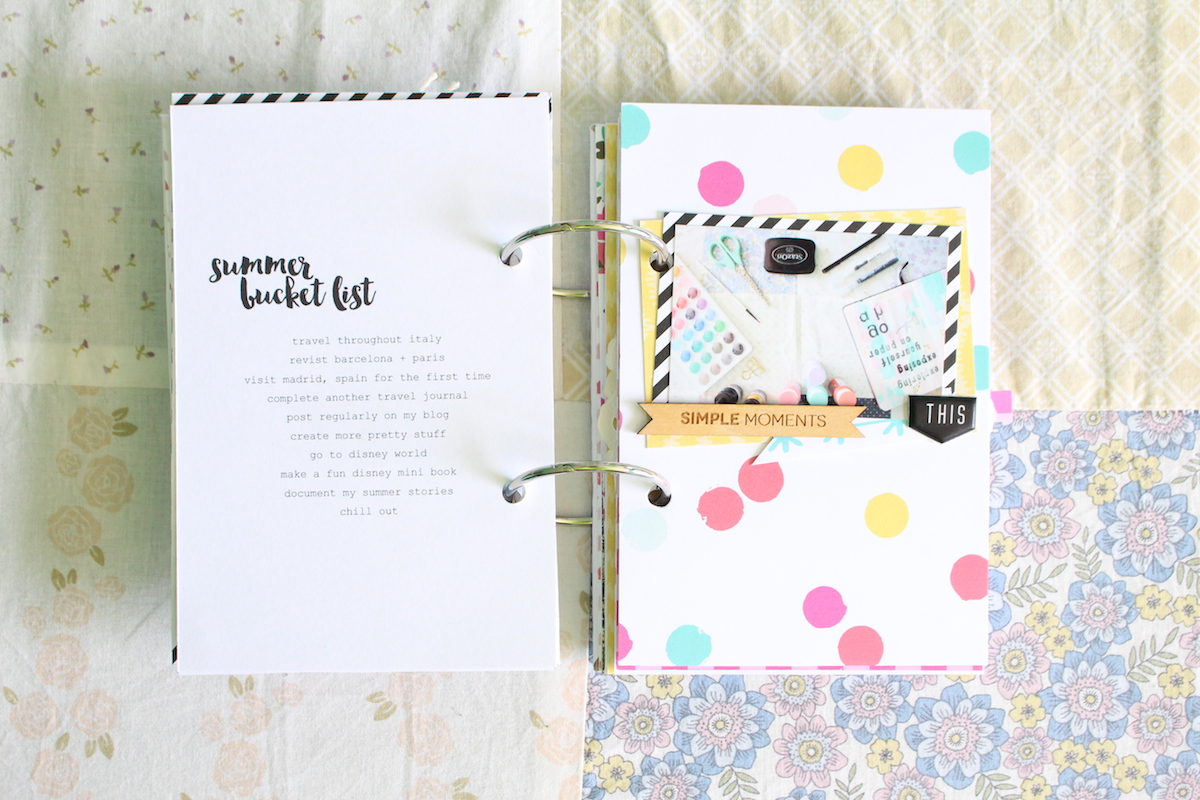 summer
bucket list
travel throughout italy
revist barcelona + paris
visit madrid, spain for the first time
complete another travel journal
post regularly on my blog
create more pretty stuff
go to disney world
make a fun disney mini book
document my summer stories
chill out
StazOn
on paper
yourself
exposing
exploring
SIMPLE MOMENTS
THIS